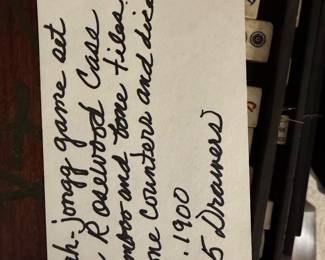 ah-jongg game set
Rosewood Cass
mboo and tone tiles.
one counters and dice
.1900
5 Drawers